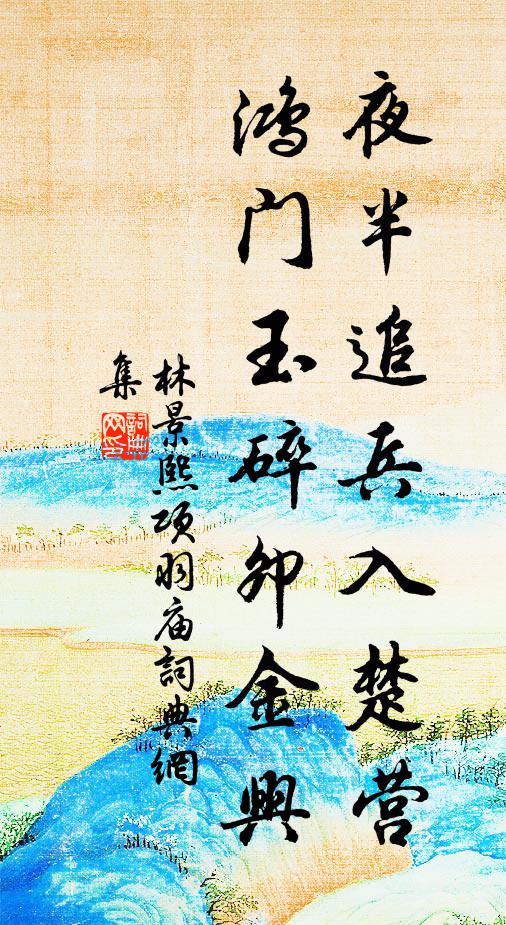 夜半追兵入楚营
鸿门玉碎卯金興
林景熙项羽庙詞典網
集
詞典